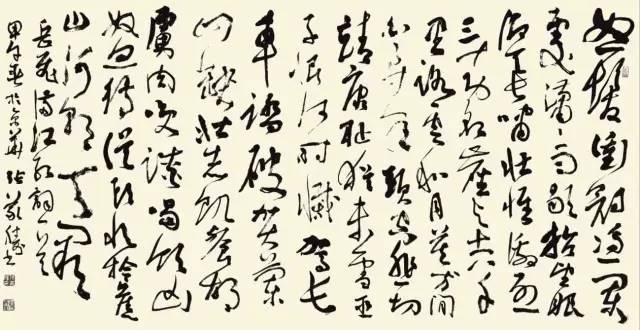 怒髮衝冠憑闌
處瀟瀟雨歇抬望眼
仰天長嘯壯懷激烈
三十功名塵與土八千
里路雲和月莫等閒
白了少年頭空悲切
靖康恥猶未雪臣
子恨何時滅駕長
車踏破賀蘭
山缺壯志飢餐胡
虜肉笑談渴飲匈
奴血待從頭收拾舊
山河朝天闕
岳飛滿江紅詞一首
甲午春於京華張